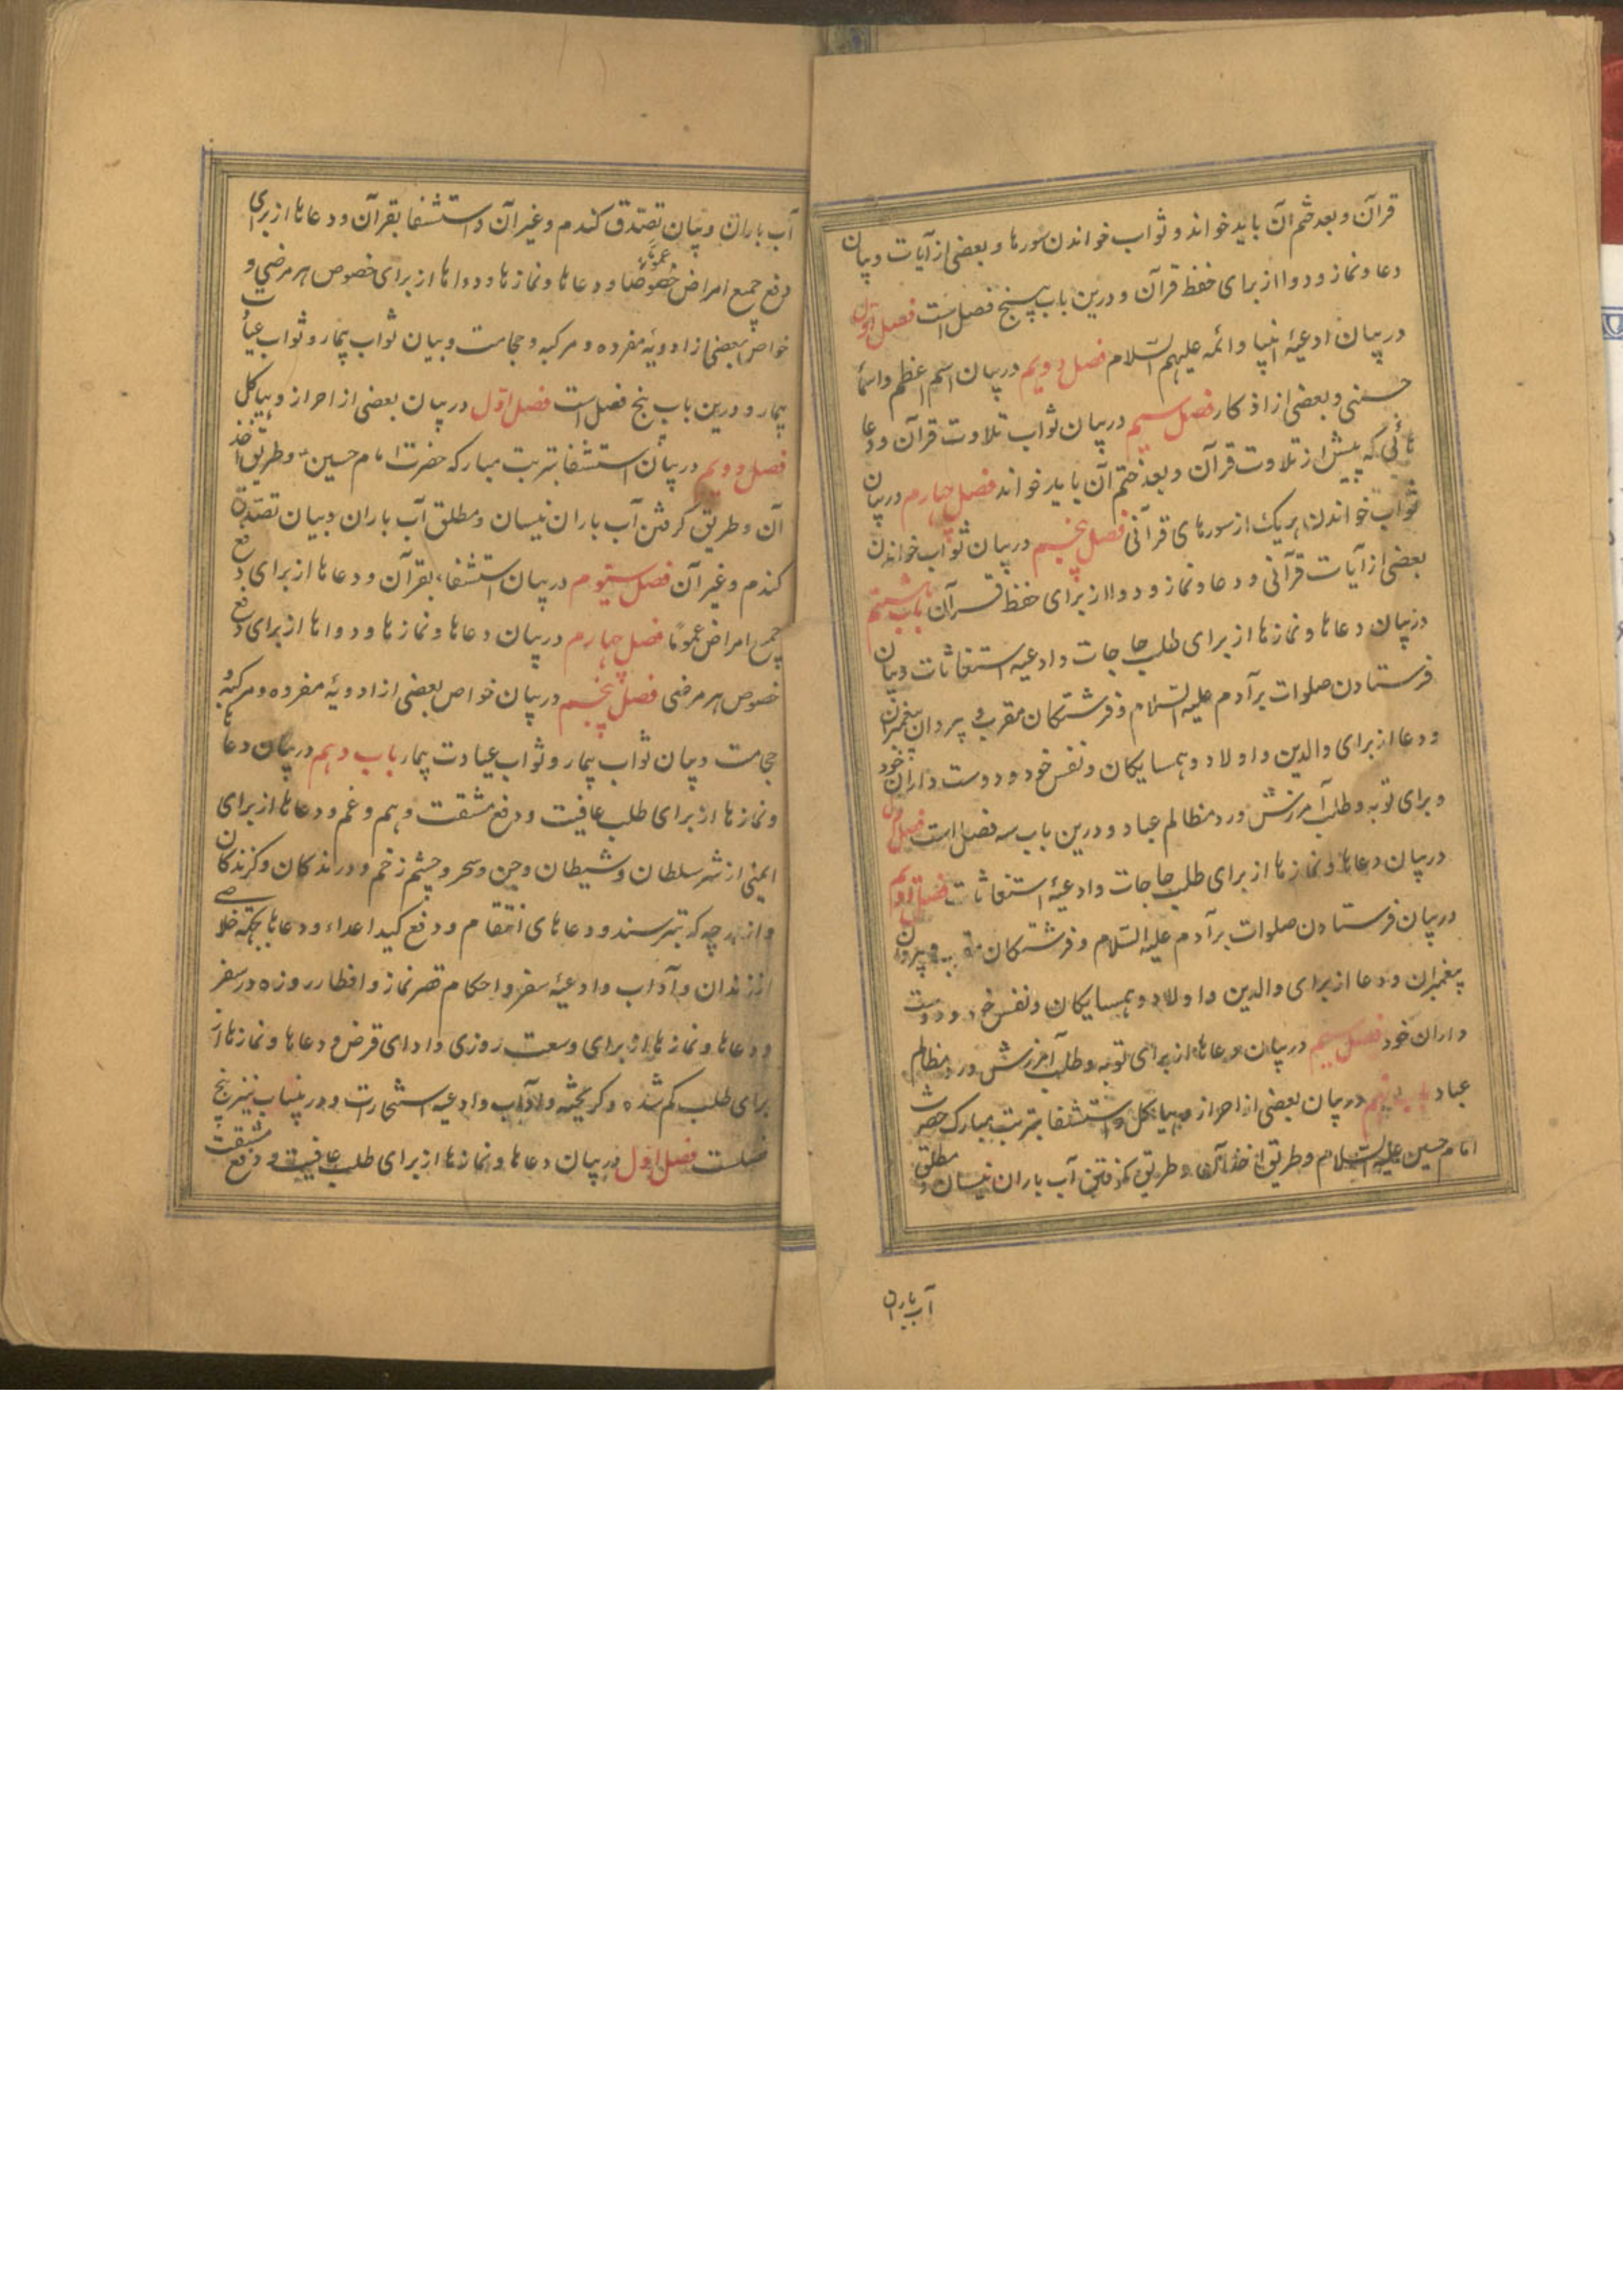 قرآن و بعد ختم آن باید خواند و ثواب خواندن سورها و بعضی از آیات و بیان
دعا و نماز و دوا از برای حفظ قرآن و درین باب پنج فصل است فصل اول
در بیان ادعیهٔ انبیا و ائمه علیهم السلام فصل دویم در بیان اسم اعظم و اسماء
حسنی و بعضی از اذکار فصل سیم در بیان ثواب تلاوت قرآن و دعا
هائی که پیش از تلاوت قرآن و بعد ختم آن باید خواند فصل چهارم در بیان
ثواب خواندن هریک از سورهای قرآنی فصل پنجم در بیان ثواب خواندن
بعضی از آیات قرآنی و دعا و نماز و دوا از برای حفظ قرآن باب هشتم
در بیان دعاها و نمازها از برای طلب حاجات و ادعیه استغاثات و بیان
فرستادن صلوات بر آدم علیه السلام و فرشتکان مقرب و پیروان پیغمبران
و دعا از برای والدین و اولاد و همسایکان و نفس خود و دوست داران خود
و برای توبه و طلب آمرزش و رد مظالم عباد و درین باب سه فصل است فصل اول
در بیان دعاها و نمازها از برای طلب حاجات و ادعیهٔ استغاثات فصل دویم
در بیان فرستادن صلوات بر آدم علیه السلام و فرشتکان مقرب و پیروان
پیغمبران و دعا از برای والدین و اولاد و همسایکان و نفس خود و دوست
داران خود فصل سیم در بیان دعاها از برای توبه و طلب آمرزش و رد مظالم
عباد باب نهم در بیان بعضی از احراز و هیاکل و استشفا بتربت مبارک حضرت
امام حسین علیه السلام و طریق اخذ آن و طریق کرفتن آب باران نیسان و مطلق
آب باران
آب باران و بیان تصدق کندم و غیر آن و استشفا بقرآن و دعاها از برای
رفع جمیع امراض عموماً خصوصا و دعاها و نمازها و دواها از برای خصوص هر مرضی و
خواص بعضی از ادویهٔ مفرده و مرکبه و حجامت و بیان ثواب بیمار و ثواب عیادت
بیمار و درین باب پنج فصل است فصل اول در بیان بعضی از احراز و هیاکل
فصل دویم در بیان استشفا بتربت مبارکه حضرت امام حسین و طریق اخذ
آن و طریق کرفتن آب باران نیسان و مطلق آب باران و بیان تصدق
کندم و غیر آن فصل سیوم در بیان استشفاء بقرآن و دعاها از برای دفع
جمیع امراض عموماً فصل چهارم در بیان دعاها و نمازها و دواها از برای دفع
خصوص هر مرضی فصل پنجم در بیان خواص بعضی از ادویهٔ مفرده و مرکبه و
حجامت و بیان ثواب بیمار و ثواب عیادت بیمار باب دهم در بیان دعاها
و نمازها از برای طلب عافیت و دفع مشقت و هم و غم و دعاها از برای
ایمنی از شر سلطان و شیطان و جن و سحر و چشم زخم و درندکان و کزندکان
و از هر چه که بترسند و دعاهای انتقام و دفع کید اعداء و دعاها بجهة خلاصی
از زندان و آداب و ادعیهٔ سفر و احکام قصر نماز و افطار روزه در سفر
و دعاها و نمازها از برای وسعت روزی و ادای قرض و دعاها و نمازها از
برای طلب کم شده و کریخته و آداب و ادعیه استخارت و درین باب نیز پنج
فصلست فصل اول در بیان دعاها و نمازها از برای طلب عافیت و دفع مشقت